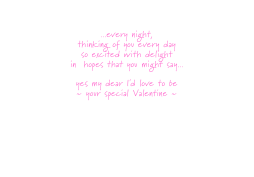 ...every night,
thinking of you every day
so excited with delight
in hopes that you might say...
yes my dear I'd love to be
~ your special Valentine ~